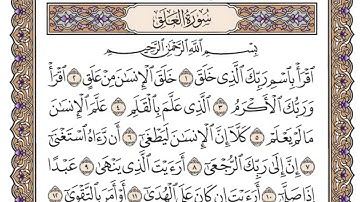 سُورَةُ الْعَلَقِ
بِسْمِ اللَّهِ الرَّحْمَٰنِ الرَّحِيمِ
اقْرَأْ بِاسْمِ رَبِّكَ الَّذِي خَلَقَ ١ خَلَقَ الْإِنسَانَ مِنْ عَلَقٍ ٢ اقْرَأْ
وَرَبُّكَ الْأَكْرَمُ ٣ الَّذِي عَلَّمَ بِالْقَلَمِ ٤ عَلَّمَ الْإِنسَانَ
مَا لَمْ يَعْلَمْ ٥ كَلَّا إِنَّ الْإِنسَانَ لَيَطْغَىٰ ٦ أَن رَّآهُ اسْتَغْنَىٰ
٧ إِنَّ إِلَىٰ رَبِّكَ الرُّجْعَىٰ ٨ أَرَأَيْتَ الَّذِي يَنْهَىٰ ٩ عَبْدًا
إِذَا صَلَّىٰ ١٠ أَرَأَيْتَ إِن كَانَ عَلَى الْهُدَىٰ ١١ أَوْ أَمَرَ بِالتَّقْوَىٰ ١٢